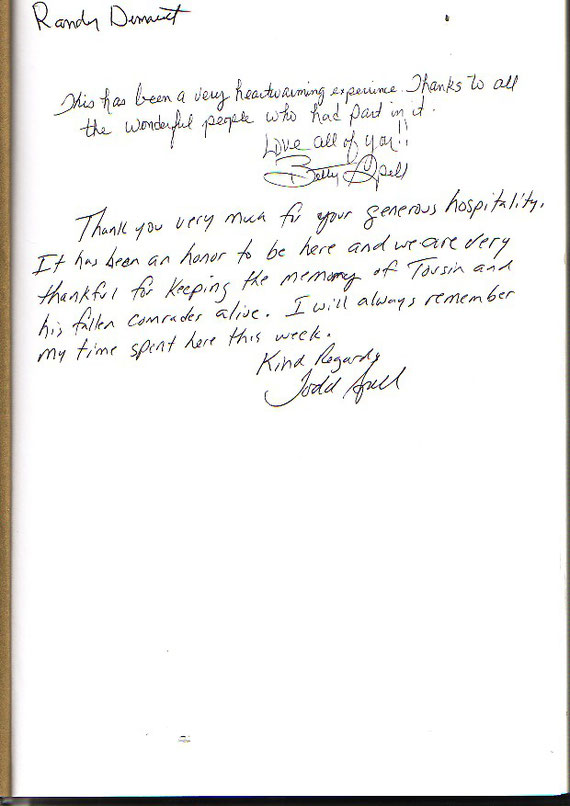 Randy
This has been a very heartwarming experience. Thanks to all
the wonderful people who had part in it.
Love all of you!!
Betty Spell
Thank you very much for your generous hospitality.
It has been an honor to be here and we are very
thankful for keeping the memory of Toussin and
his fallen comrades alive. I will always remember
my time spent here this week.
Kind Regards
Todd Spell